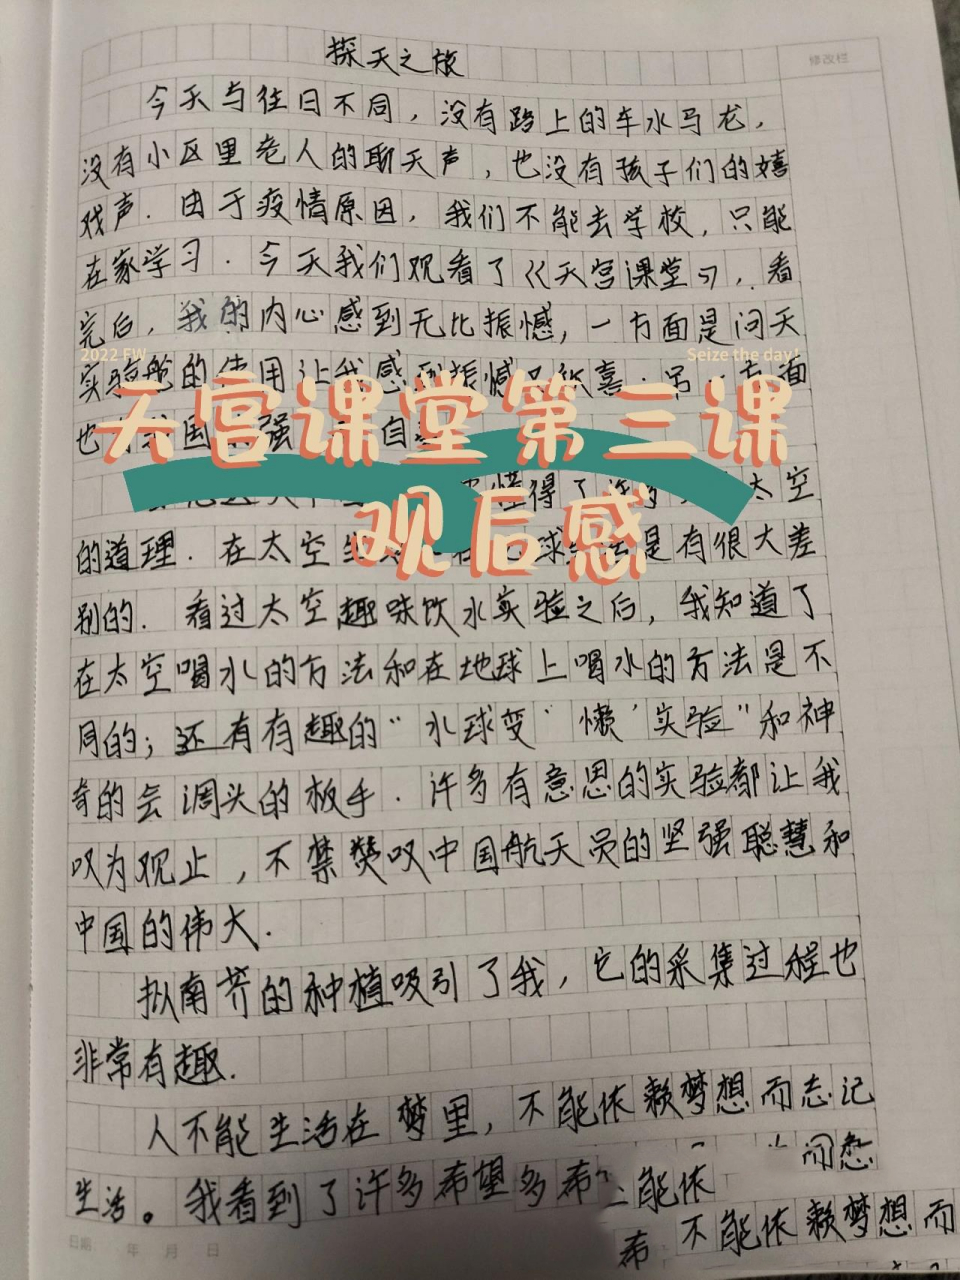 探天之旅
修改栏
今天与往日不同，没有路上的车水马龙，
没有小区里老人的聊天声，也没有孩子们的嬉
戏声．由于疫情原因，我们不能去学校，只能
在家学习．今天我们观看了《天宫课堂》，看
完后，我的内心感到无比振憾，一方面是问天
2022 FW
Seize the day!
实验舱的使用让我感到振憾
面
也 国 强 自
天宫课堂第三课
观后感
懂得了 太空
的道理．在太空 球 是有很大差
别的．看过太空趣味饮水实验之后，我知道了
在太空喝水的方法和在地球上喝水的方法是不
同的；还有有趣的“水球变‘懒’实验”和神
奇的会调头的板手．许多有意思的实验都让我
叹为观止，不禁赞叹中国航天员的坚强聪慧和
中国的伟大．
拟南芥的种植吸引了我，它的采集过程也
非常有趣．
人不能生活在梦里，不能依赖梦想而忘记
生活。我看到了许多希望多希
能依
希 不能依赖梦想而
日期 年 月 日